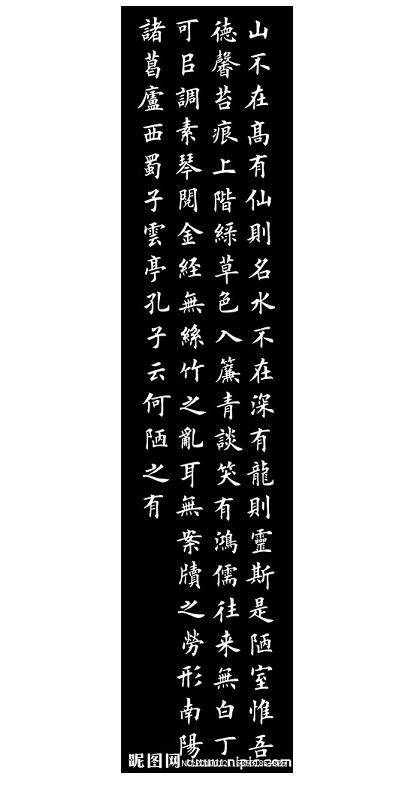 山不在髙有仙則名水不在深有龍則靈斯是陋室惟吾
徳馨苔痕上階緑草色入簾青談笑有鴻儒往来無白丁
可㠯調素琴閲金経無絲竹之亂耳無案牘之勞形南陽
諸葛廬西蜀子雲亭孔子云何陋之有
昵图网 www.nipic.com